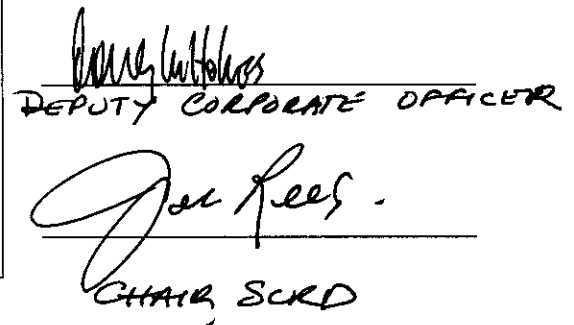 DEPUTY CORPORATE OFFICER
Joe Rees.
CHAIR SCRD